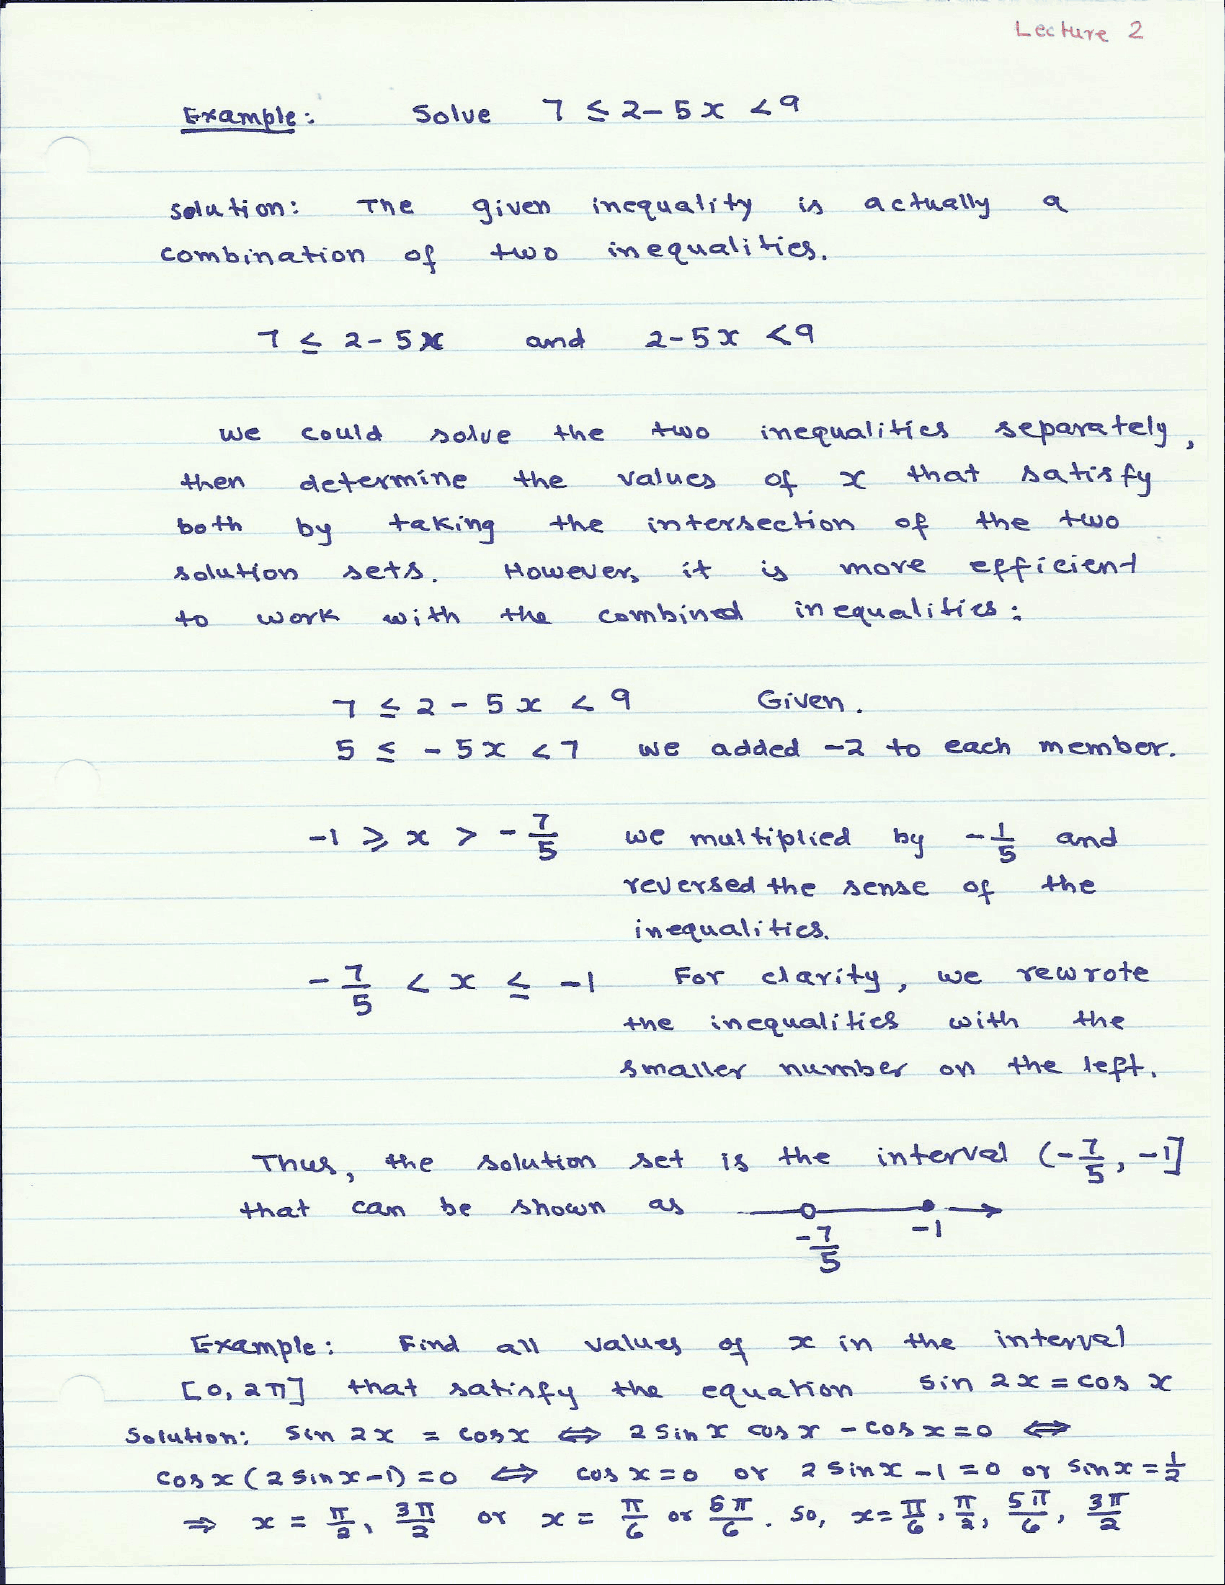 Lecture 2
Example: Solve 7 ≤ 2 - 5x < 9
Solution: The given inequality is actually a
combination of two inequalities.
7 ≤ 2 - 5x and 2 - 5x < 9
We could solve the two inequalities separately,
then determine the values of x that satisfy
both by taking the intersection of the two
solution sets. However, it is more efficient
to work with the combined inequalities:
7 ≤ 2 - 5x < 9 Given.
5 ≤ - 5x < 7 We added -2 to each member.
-1 ≥ x > - 7/5 We multiplied by - 1/5 and
reversed the sense of the
inequalities.
- 7/5 < x ≤ -1 For clarity, we rewrote
the inequalities with the
smaller number on the left.
Thus, the solution set is the interval (-7/5, -1]
that can be shown as
-7/5 -1
Example: Find all values of x in the interval
[0, 2π] that satisfy the equation sin 2x = cos x
Solution: sin 2x = cos x ⇔ 2 sin x cos x - cos x = 0 ⇔
cos x (2 sin x - 1) = 0 ⇔ cos x = 0 or 2 sin x - 1 = 0 or sin x = 1/2
⇒ x = π/2, 3π/2 or x = π/6 or 5π/6. So, x = π/6, π/2, 5π/6, 3π/2